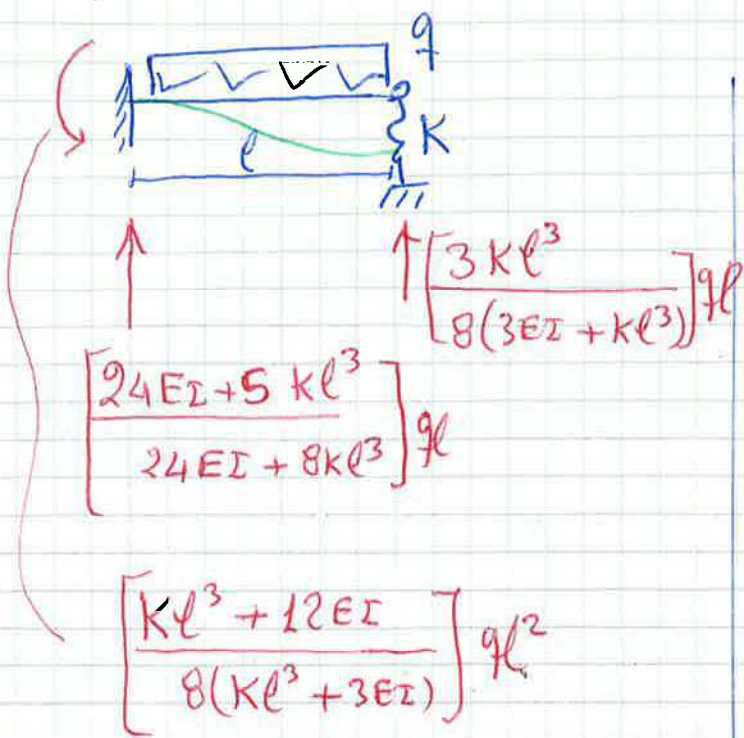 q
l
K
[3Kl³ / 8(3EI + Kl³)] ql
[24EI + 5 Kl³ / 24EI + 8Kl³] ql
[Kl³ + 12EI / 8(Kl³ + 3EI)] ql²